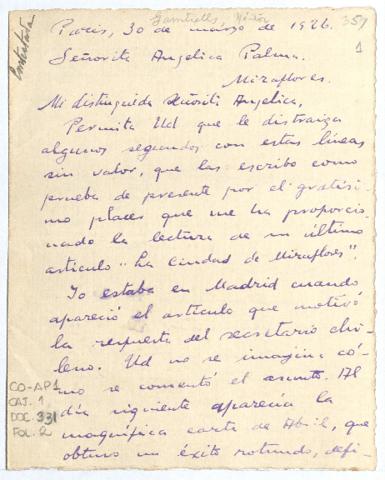 Contestada
Gambetta, Néstor
357
1
Paris, 30 de marzo de 1926.
Señorita Angelica Palma.
Miraflores.
Mi distinguida señorita Angelica,
Permita Ud que le distraiga
algunos segundos con estas lineas
sin valor, que las escribo como
prueba de presente por el gratisi-
mo placer que me ha proporcio-
nado la lectura de su último
articulo "La ciudad de Miraflores".
Yo estaba en Madrid cuando
apareció el artículo que motivó
la respuesta del secretario chi-
leno. Ud no se imagina có-
mo se comentó el asunto. Al
día siguiente aparecía la
magnífica carta de Abril, que
obtuvo un éxito rotundo, defi-
CO-AP1
CAJ. 1
DOC. 331
FOL. 2